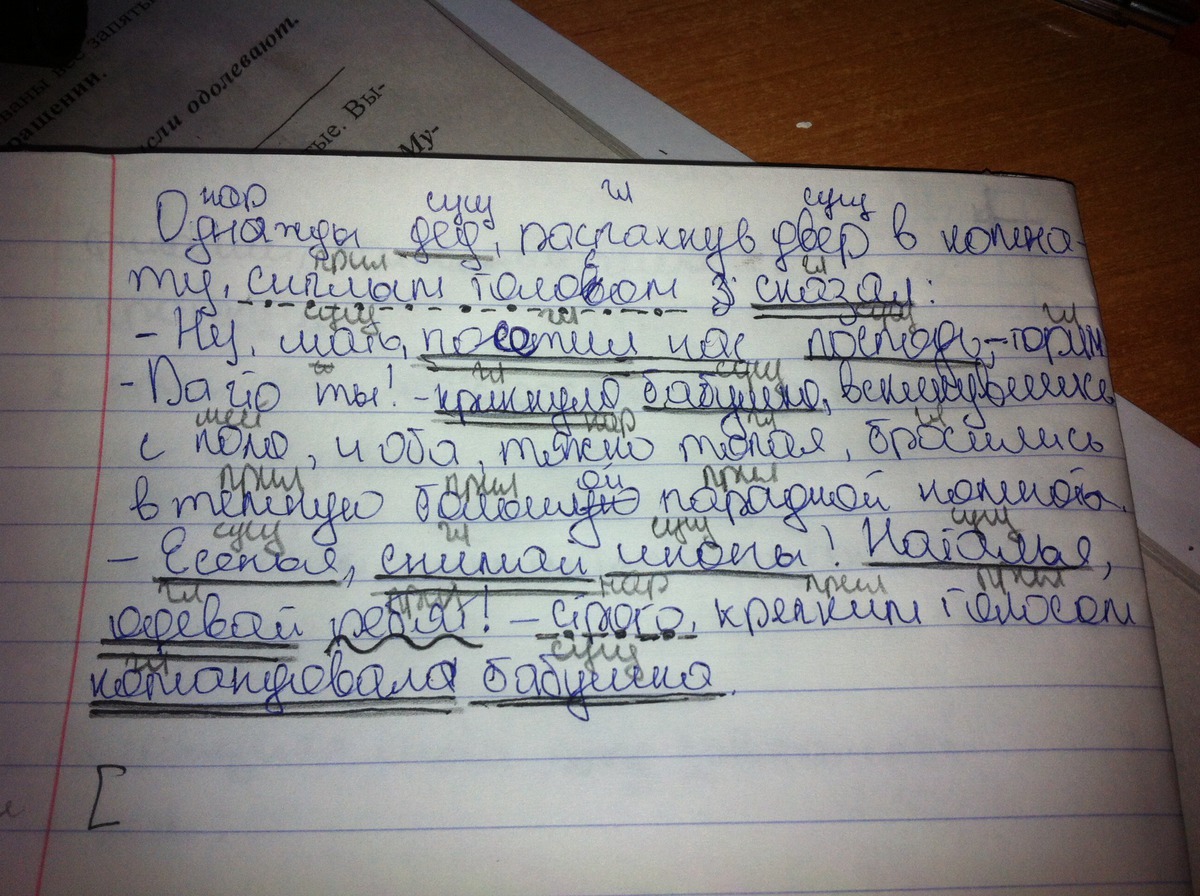 ваны все запяты
рашении.
сли одолевают.
тые. Вы-
Му-
нар сущ гл сущ
Однажды дед, распахнув двер в комна-
прил гл
ту, сиплым голосом сказал:
сущ гл сущ гл
- Ну, мать, посетил нас господь, - горим
гл сущ
- Да что ты! - крикнула бабушка, вскинувшись
мест нар гл гл
с пола, и оба, тяжко топая, бросились
прил прил ой прил
в темную большую парадной комнаты.
сущ гл сущ сущ
- Евгенья, снимай иконы! Наталья,
гл прил нар прил прил
одевай ребят! - строго, крепким голосом
гл сущ
командовала бабушка.
[